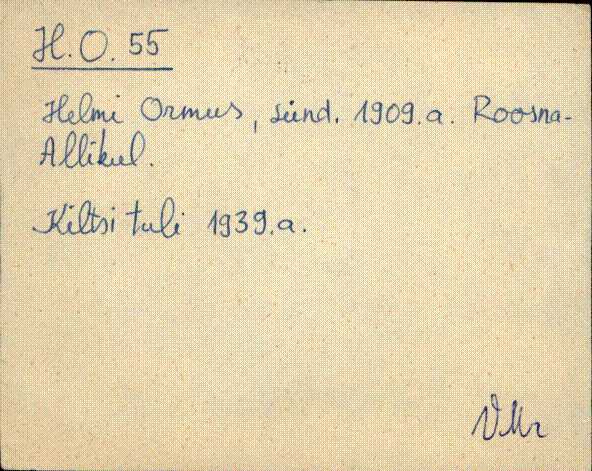 H.O. 55
Helmi Ormus, sünd. 1909.a. Roosna-
Allikul.
Kiltsi tuli 1939.a.
VMr